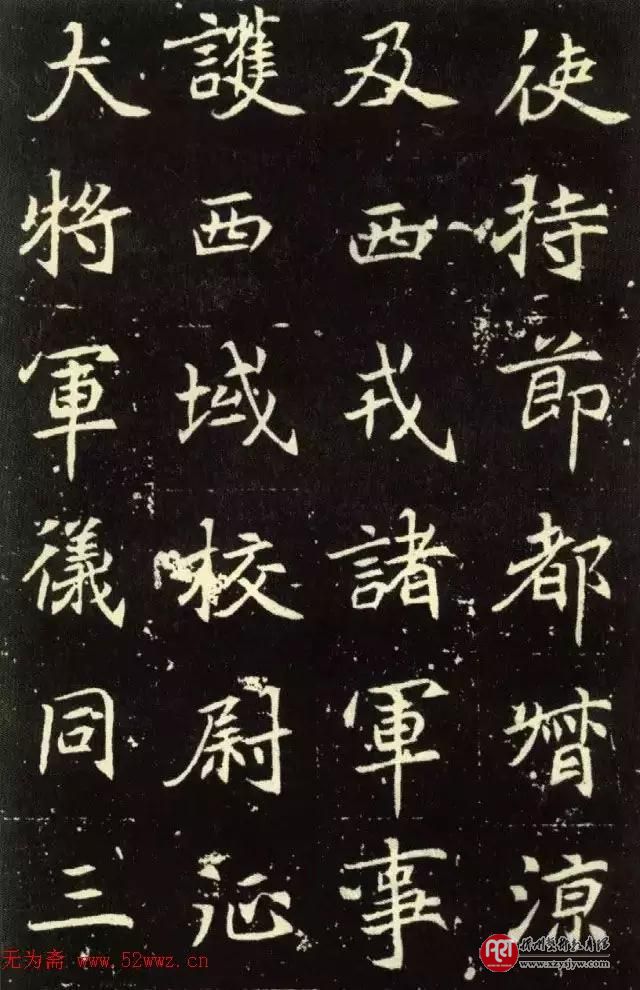 使持節都督涼
及西戎諸軍事
護西域校尉征
大將軍儀同三
无为斋 www.52wwz.cn
www.xzysjyw.com